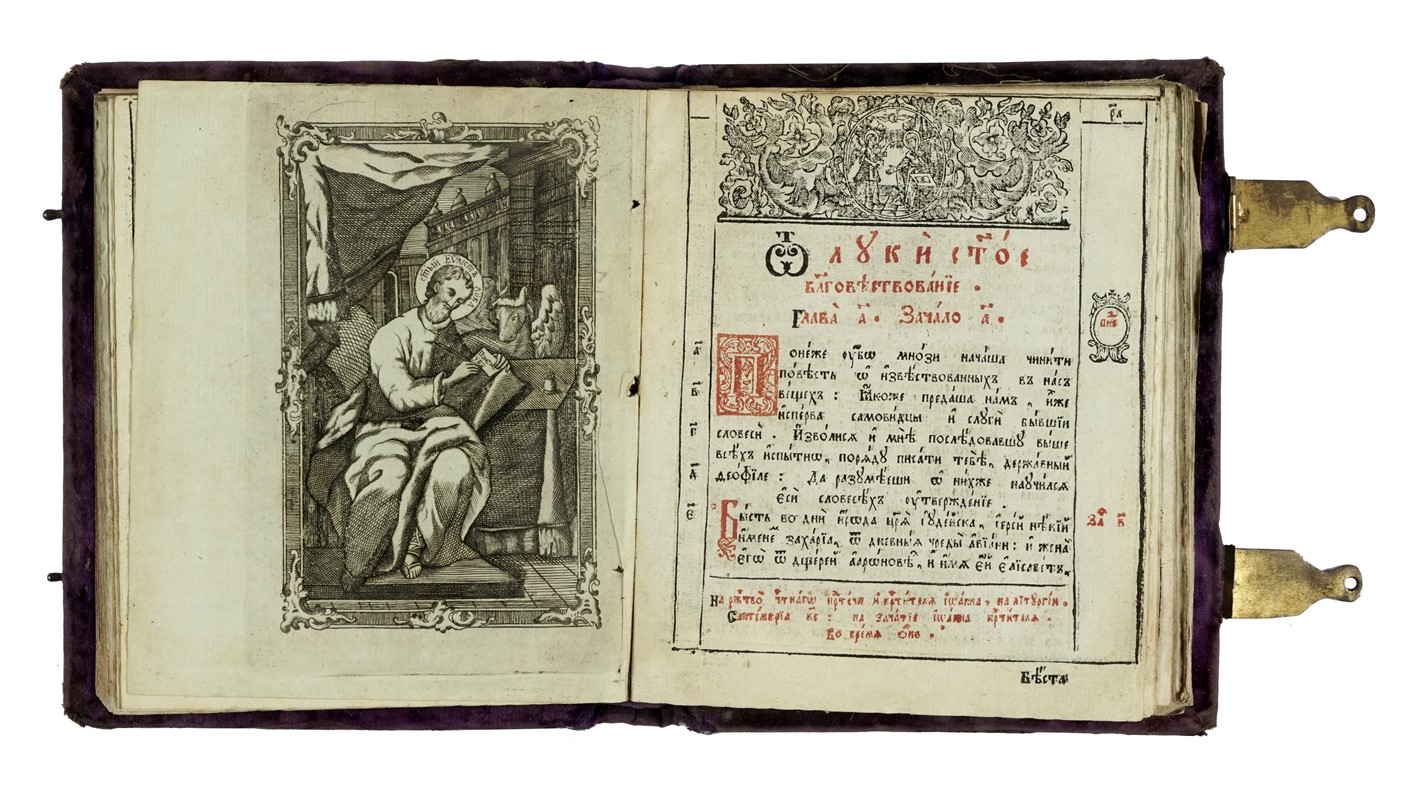 СТ҃ЫЙ ЕѴЛИСТЪ ЛУКА
р҃а
Ѿ лꙋкѝ ст҃о́е
бл҃говѣствова́нїе .
Глава̀ а҃ . Зача́ло а҃ .
Поне́же ᲂу҆́бѡ мно́зи нача́ша чини́ти
по́вѣсть ѡ҆ и҆звѣ́ствованныхъ въ на́съ
ве́щехъ : Ꙗ҆́коже преда́ша на́мъ , и҆̀же
и҆спе́рва самови́дцы и҆ слꙋги̑ бы́вшїи
словесѝ . И҆зво́лисѧ и҆ мнѣ̀ послѣ́довавшꙋ вы́ше
всѣ̑хъ и҆спы́тнѡ , поря́дꙋ писа́ти тебѣ̀ , держа́вный
ѳео́фїле : Да разꙋмѣ́еши ѡ҆ ни́хже наꙋчи́лсѧ
є҆сѝ словесѣ́хъ ᲂу҆твержде́нїе .
Бы́сть во дни̑ и҆́рѡда цр҃ѧ̀ і҆ꙋде́йска , і҆ере́й нѣ́кїй
и҆́менемъ заха́рїа , ѿ дне́вныѧ чреды̀ а҆вїа́ни : и҆ жена̀
є҆гѡ̀ ѿ дще́рей а҆арѡ́новѣ , и҆ и҆́мѧ є҆́й є҆лїсаве́тъ ,
а҃
в҃
г҃
д҃
є҃
за҃ в҃
На ржⷭ҇тво̀ чⷭ҇тна́гѡ прⷣте́чи и҆ крⷭ҇ти́телѧ і҆ѡа́нна , на лїтꙋргі́и .
Септе́мврїа к҃г : на зача́тїе і҆ѡа́нна крⷭ҇ти́телѧ .
Во вре́мѧ ѻ҆́но .
Бѣ́ста